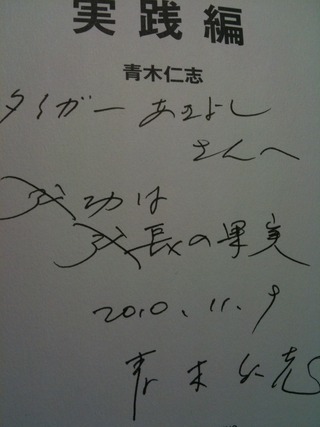 実践編
青木仁志
タイガー あきよし
さんへ
成功は
成長の果実
2010.11.9
青木仁志